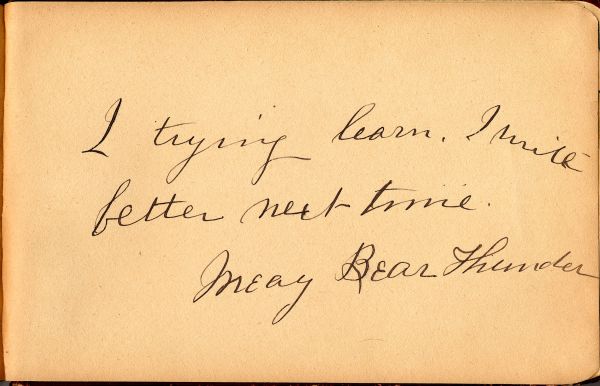 I trying learn. I write
better next time.
Meay Bear Thunder